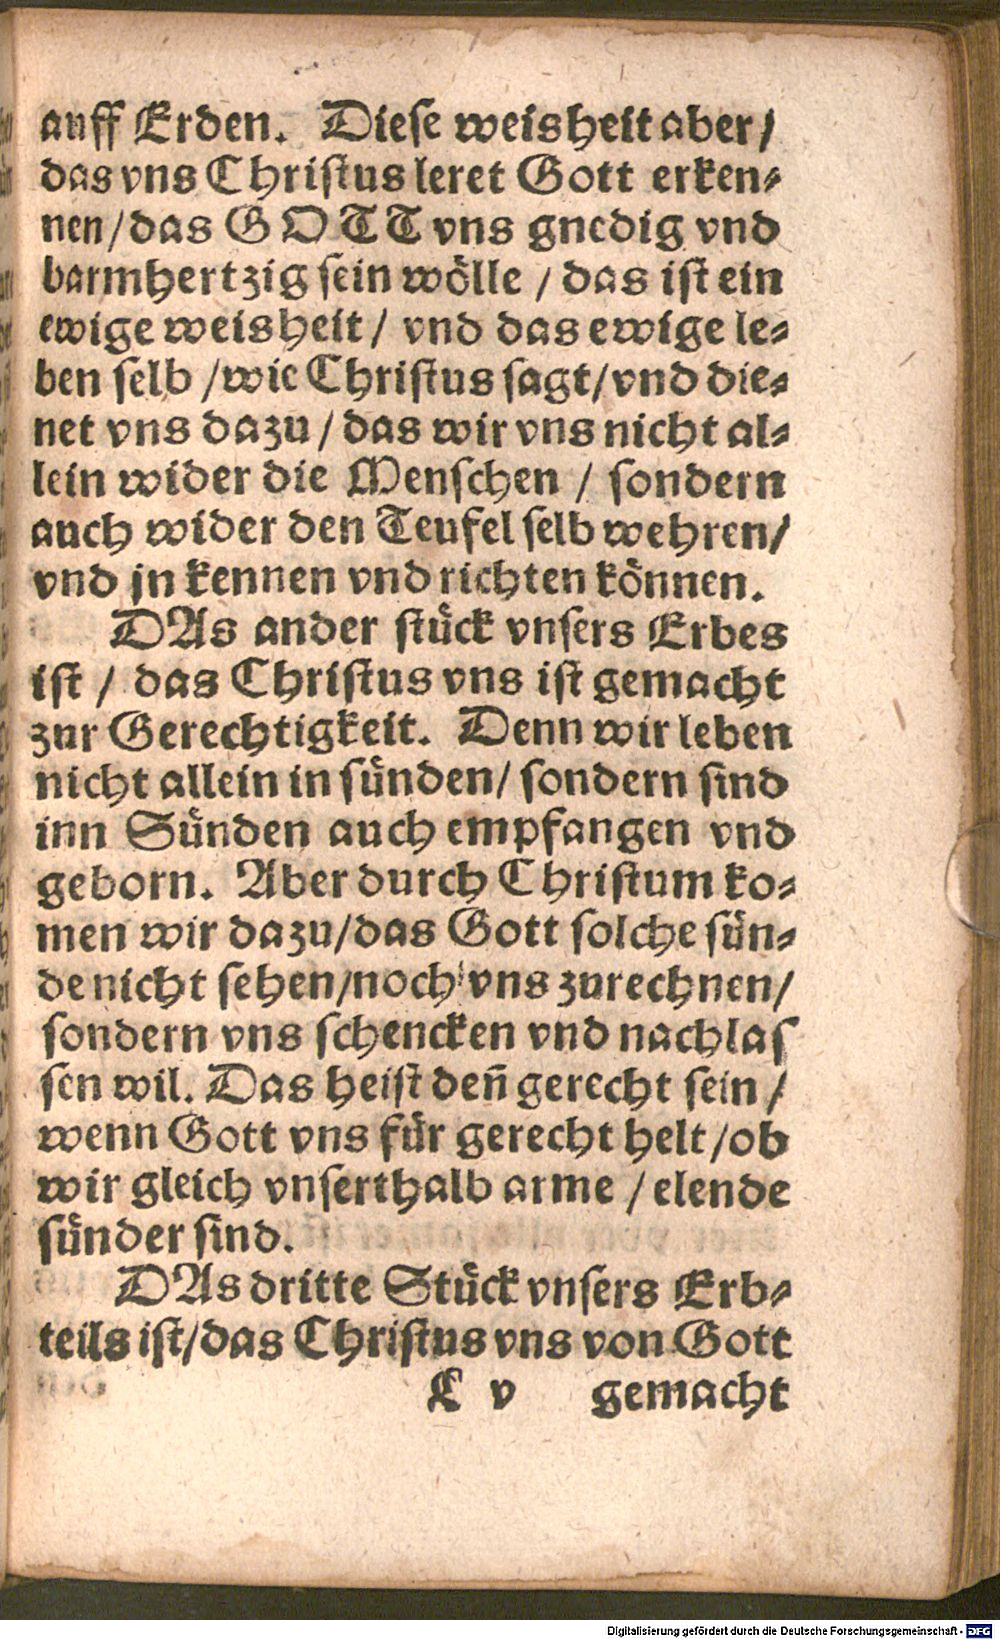 auff Erden. Diese weisheit aber/
das vns Christus leret Gott erken-
nen/das GOTT vns gnedig vnd
barmhertzig sein wölle / das ist ein
ewige weisheit/ vnd das ewige le-
ben selb /wie Christus sagt/vnd die-
net vns dazu/ das wir vns nicht al-
lein wider die Menschen / sondern
auch wider den Teufel selb wehren/
vnd jn kennen vnd richten können.
DAs ander stück vnsers Erbes
ist / das Christus vns ist gemacht
zur Gerechtigkeit. Denn wir leben
nicht allein in sünden/ sondern sind
inn Sünden auch empfangen vnd
geborn. Aber durch Christum ko-
men wir dazu/das Gott solche sün-
de nicht sehen/noch vns zurechnen/
sondern vns schencken vnd nachlas
sen wil. Das heist deñ gerecht sein /
wenn Gott vns für gerecht helt/ob
wir gleich vnserthalb arme / elende
sünder sind.
DAs dritte Stück vnsers Erb-
teils ist/das Christus vns von Gott
L v gemacht
Digitalisierung gefördert durch die Deutsche Forschungsgemeinschaft - DFG